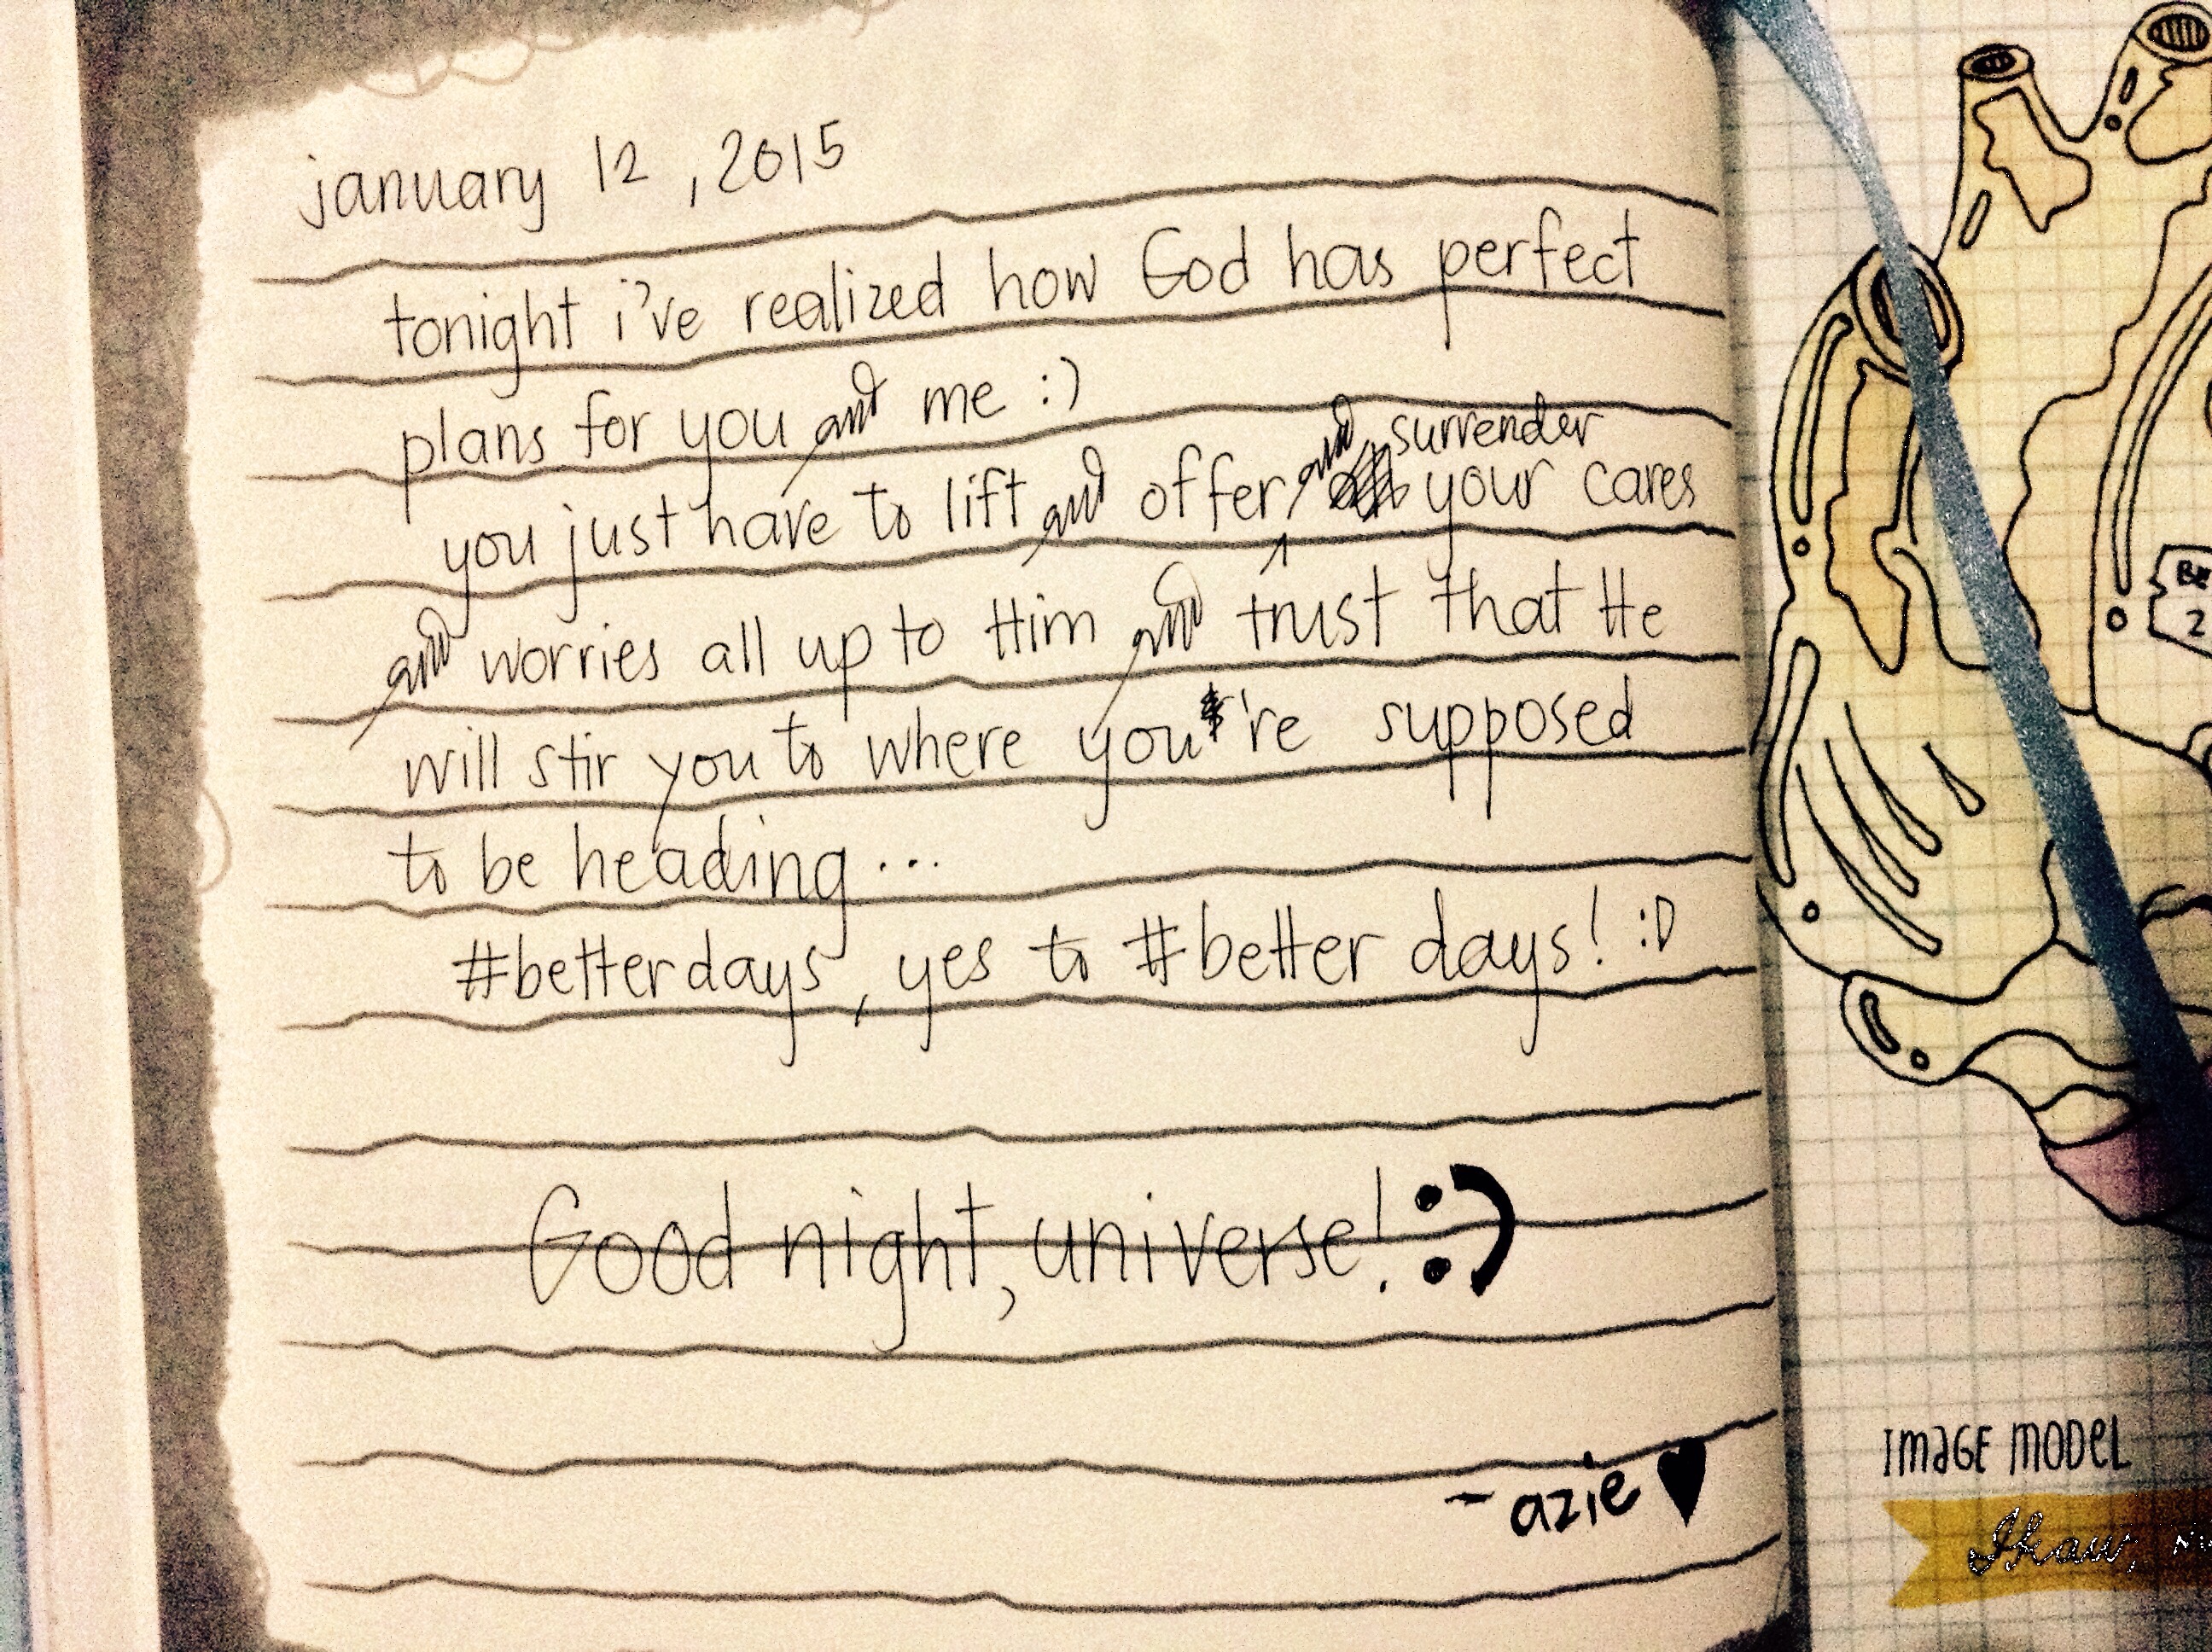 january 12, 2015
tonight i've realized how God has perfect
plans for you and me :)
you just have to lift and offer and surrender your cares
and worries all up to Him and trust that He
will stir you to where you're supposed
to be heading...
#betterdays, yes to #better days! :D
Good night, universe! :)
- azie ♥
BE
2
IMAGE MODEL
Ikaw,